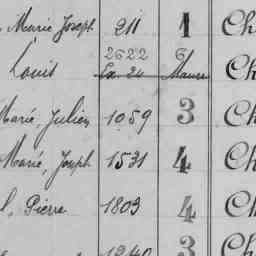 Marie Joseph 211 1 Ch
2622 6
Louis Ch
Marie, Julien 1059 3 Ch
Marie, Joseph 1531 4 Ch
Pierre 1803 4 Ch
1240 3 Ch